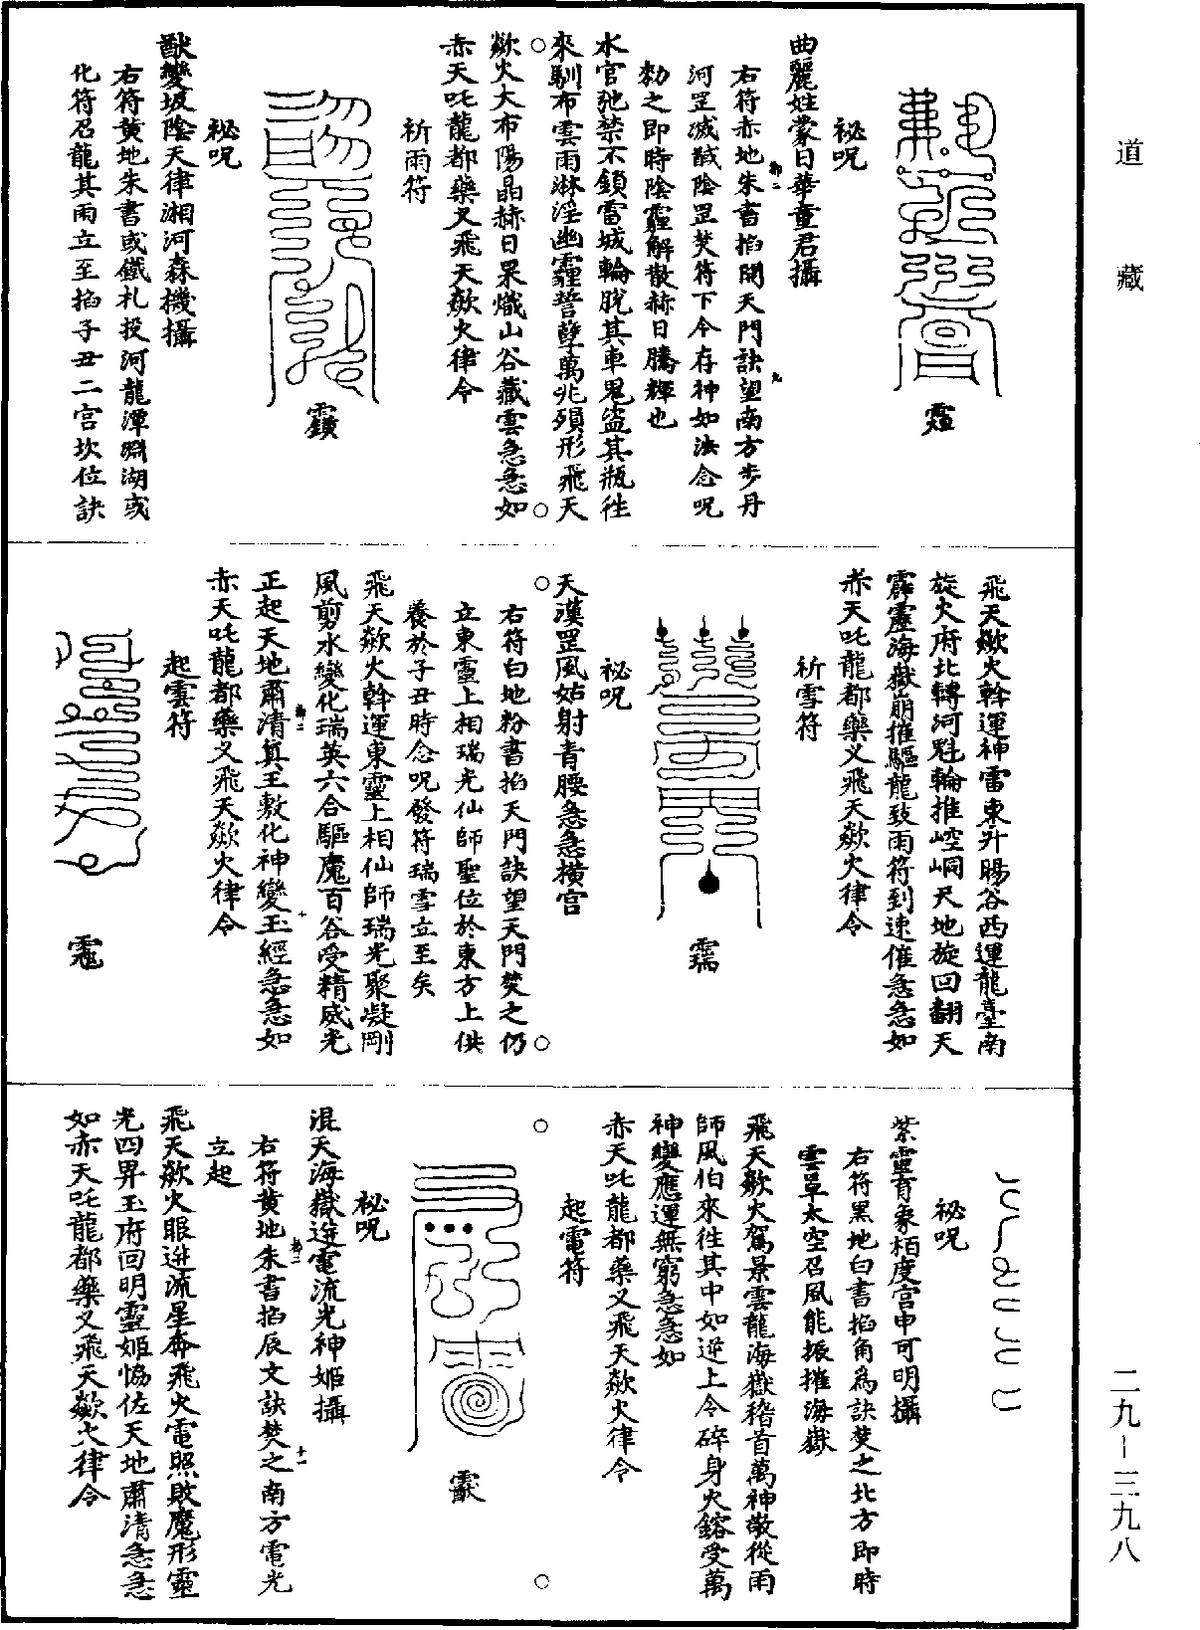 道藏
靇
秘呪
曲麗姓蒙日華童君攝
右符赤地朱書掐開天門訣望南方步丹
河罡滅馘陰罡焚符下令存神如法念呪
勅之即時陰霾解散赫日騰輝也
水官弛禁不鎖雷城輪脫其車鬼盜其瓶往
來馴布雲雨淋淫幽霾誓孽萬兆殞形飛天
歘火大布陽晶赫日杲熾山谷藏雲急急如
赤天吒龍都藥乂飛天歘火律令
祈雨符
秘呪
猷變坂陰天律湘河森機攝
右符黄地朱書或鐵札投河龍潭淵湖或
化符召龍其雨立至掐子丑二宫坎位訣
飛天歘火斡運神雷東升暘谷西運龍臺南
旋火府北轉河魁輪推崆峒天地旋回翻天
霹靂海嶽崩摧驅龍致雨符到速催急急如
赤天吒龍都藥乂飛天歘火律令
祈雪符
秘呪
天漢罡風姑射青腰急急擯宫
右符白地粉書掐天門訣望天門焚之仍
立東靈上相瑞光仙師聖位於東方上供
養於子丑時念呪發符瑞雪立至矣
飛天歘火斡運東靈上相仙師瑞光聚凝剛
風剪水變化瑞英六合驅魔百谷受精威光
正起天地肅清真王敷化神變玉經急急如
赤天吒龍都藥乂飛天歘火律令
起雲符
秘呪
紫靈育象栢度宫申可明攝
右符黑地白書掐角爲訣焚之北方即時
雲罩太空召風能振摧海嶽
飛天歘火駕景雲龍海嶽稽首萬神敬從雨
師風伯來往其中如逆上令碎身火鎔受萬
神變應運無窮急急如
赤天吒龍都藥乂飛天歘火律令
起電符
秘呪
混天海嶽迸電流光神姬攝
右符黄地朱書掐辰文訣焚之南方電光
立起
飛天歘火眼迸流星奔飛火電照敗魔形靈
光四界玉府回明靈姬恊佐天地肅清急急
如赤天吒龍都藥乂飛天歘火律令
二九-三九八